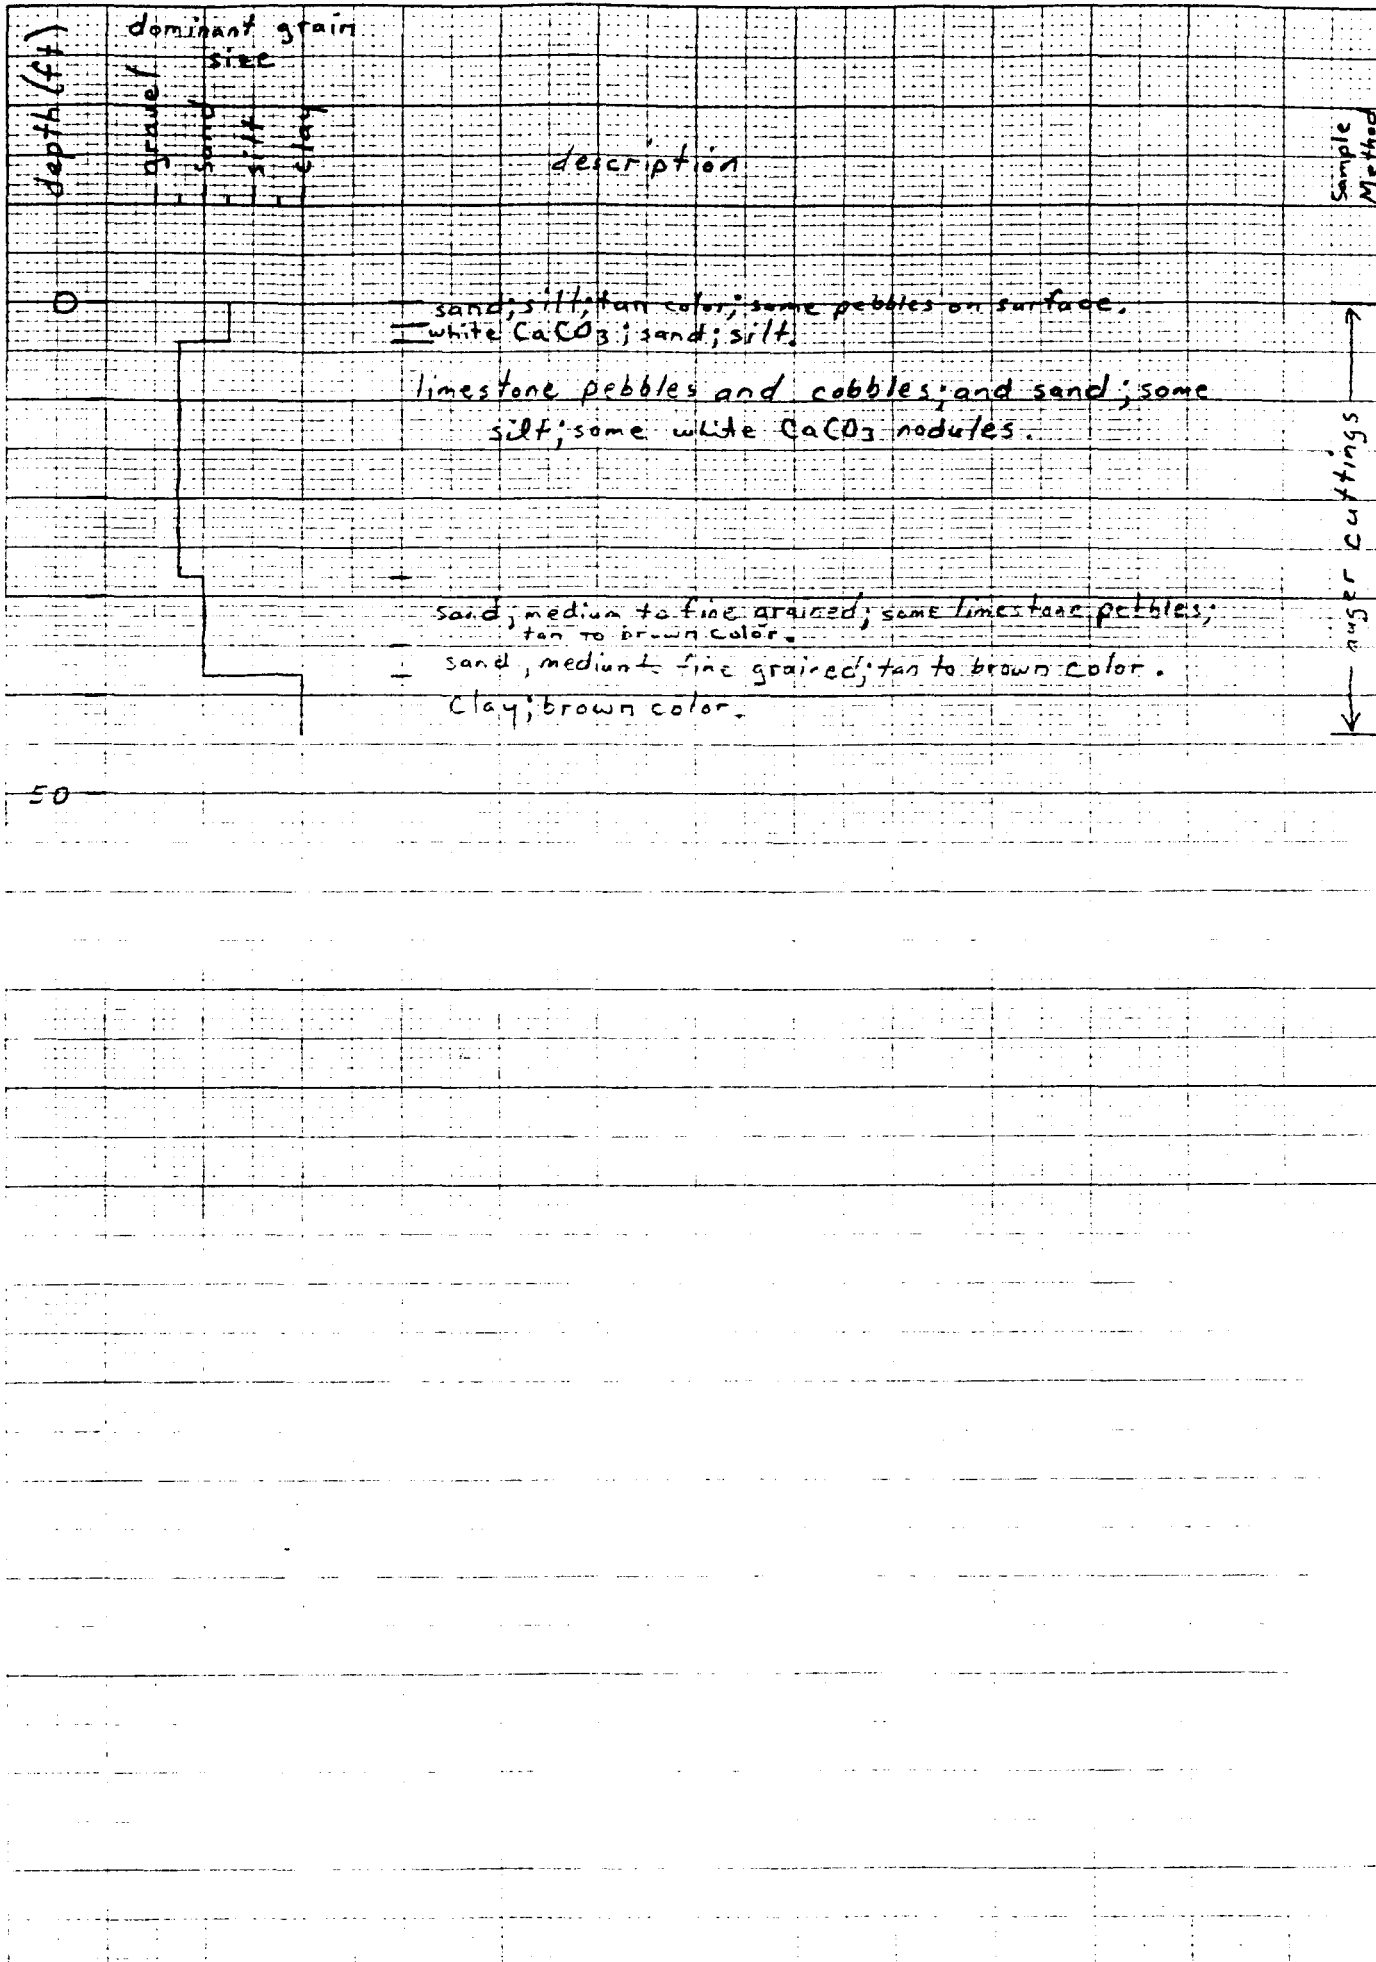 depth (ft)
dominant grain
size
gravel
sand
silt
clay
description
Sample
Method
0
sand; silt; tan color; some pebbles on surface.
white CaCO3; sand; silt.
limestone pebbles and cobbles; and sand; some
silt; some white CaCO3 nodules.
sand; medium to fine grained; some limestone pebbles;
tan to brown color.
sand, medium to fine grained; tan to brown color.
Clay; brown color.
auger cuttings
50